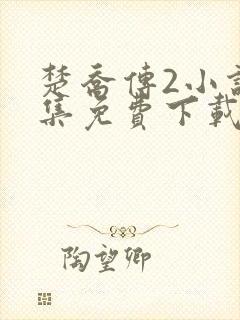 楚喬傳2小
集免費下載
陶望卿